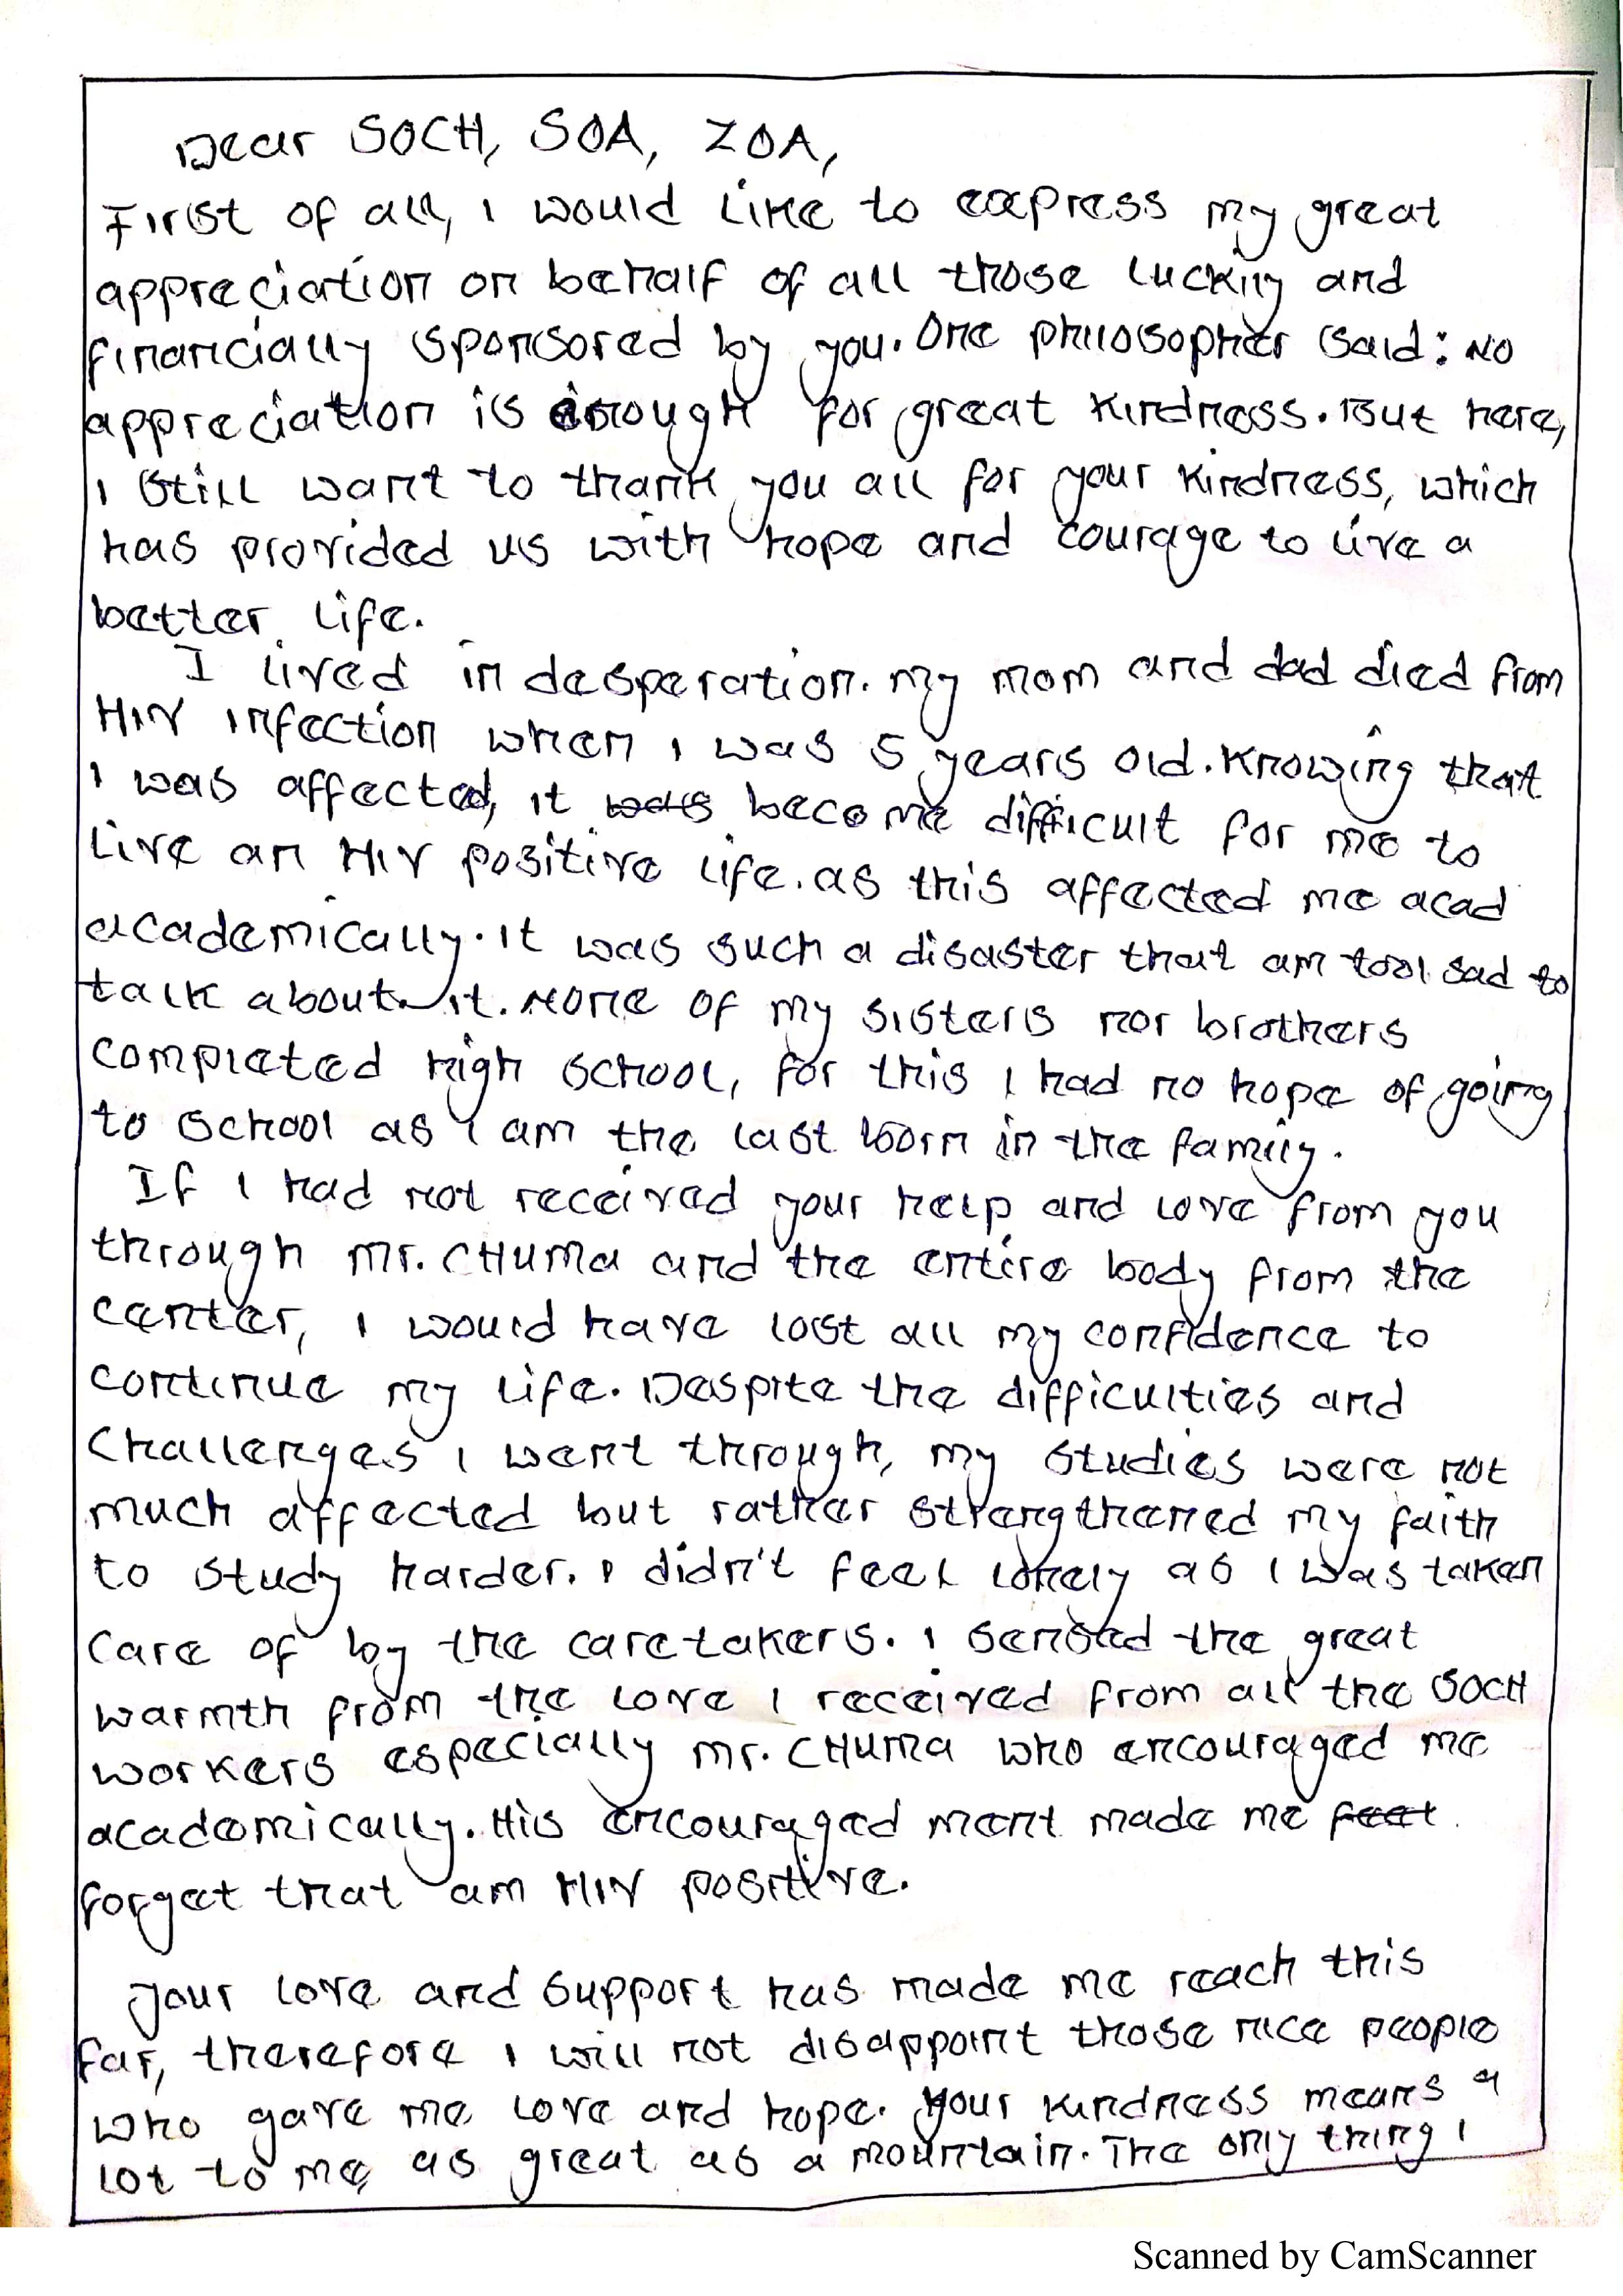 Dear SOCH, SOA, ZOA,
First of all, I would like to express my great
appreciation on behalf of all those luckily and
financially sponsored by you. One philosopher said: No
appreciation is enough for great kindness. But here,
I still want to thank you all for your kindness, which
has provided us with hope and courage to live a
better life.
I lived in desperation. my mom and dad died from
HIV infection when I was 5 years old. Knowing that
I was affected, it was become difficult for me to
live an HIV positive life. as this affected me acad
academically. It was such a disaster that am too sad to
talk about it. None of my sisters nor brothers
completed high school, for this I had no hope of going
to school as I am the last born in the family.
If I had not received your help and love from you
through Mr. CHUMA and the entire body from the
center, I would have lost all my confidence to
continue my life. Despite the difficulties and
challenges I went through, my studies were not
much affected but rather strengthened my faith
to study harder. I didn't feel lonely as I was taken
care of by the caretakers. I sensed the great
warmth from the love I received from all the SOCH
workers especially Mr. CHUMA who encouraged me
academically. His encouraged ment made me feet
forget that am HIV positive.
Your love and support has made me reach this
far, therefore I will not disappoint those nice people
who gave me love and hope. Your kindness means a
lot to me, as great as a mountain. The only thing I
Scanned by CamScanner